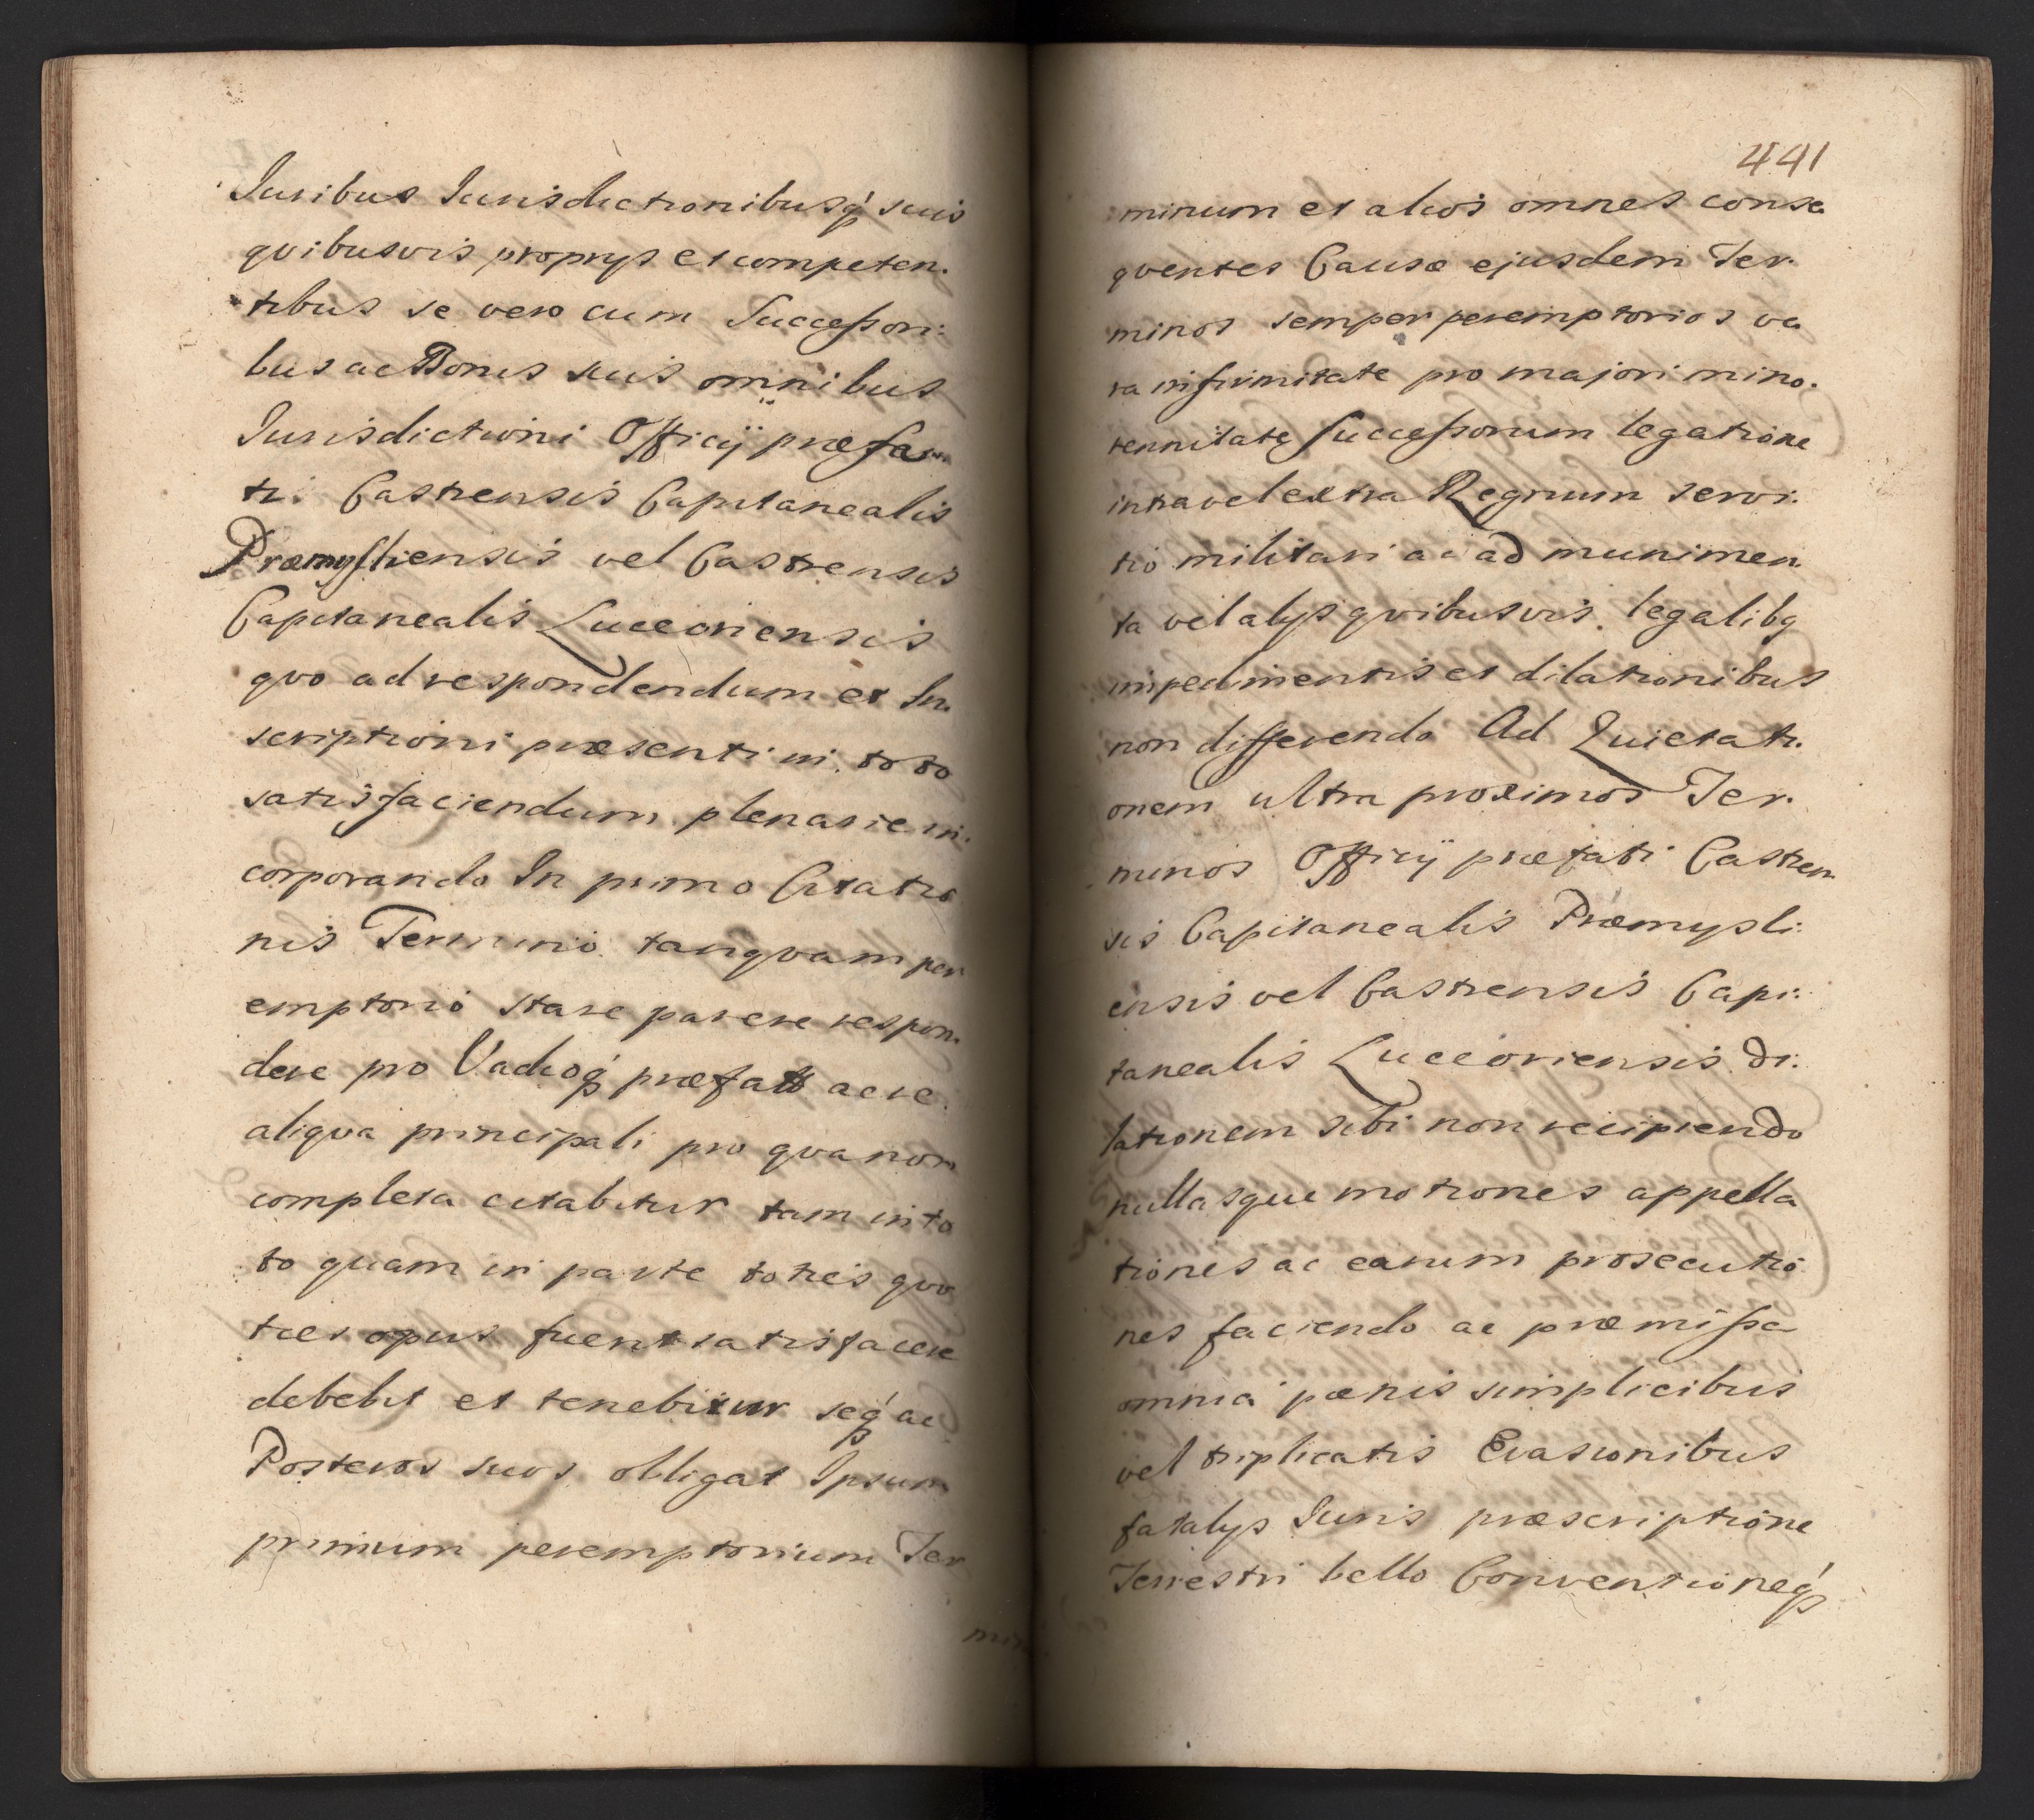 Iuribus Iurisdictionibusq́ suis
qvibusvis proprys et competen.
tibus se vero cum Successori:
bus ac Bonis suis omnibus
Iurisdictioni Officÿ præfa
ti Castrensis Capitanealis
Præmysliensis vel Castrensis
Capitanealis Lucceoriensis
qvo ad respondendum et In.
scriptioni præsenti in toto
satisfaciendum plenarie in.
corporando In primo Citatio
nis Termino tanqvam per
emptorio stare parere respon.
dere pro Vadioq́ præfatt ac re
aliqva principali pro qva non
completa citabitur tam in to
to quam in parte toties quo
ties opus fuerit satisfacere
debebit et tenebitur seq́ ac
Posteros suos obligat Ipsum
primum peremptorium Ter
min
441
minum et alios omnes conse
qventes Causæ ejusdem Ter.
minos semper peremptorios ve
ra infirmitate pro majori mino.
rennitate Successorum legatione
intra vel extra Regnum servi.
tio militari ac ad munimen.
ta vel alys qvibusvis legalibq
impedimentis et dilationibus
non differendo Ad Quietati.
onem ultra proximos Ter.
minos Officÿ præfati Castren
sis Capitanealis Præmysli:
ensis vel Castrensis Capi:
tanealis Lucceoriensis di:
lationem sibi non recipiendo
nullasque motiones appella
tiones ac earum prosecutio
nes faciendo ac præmissa
omnia pænis simplicibus
vel triplicatis Evasionibus
fatalys Iuris præscriptione
Terrestri bello Conventioneq́